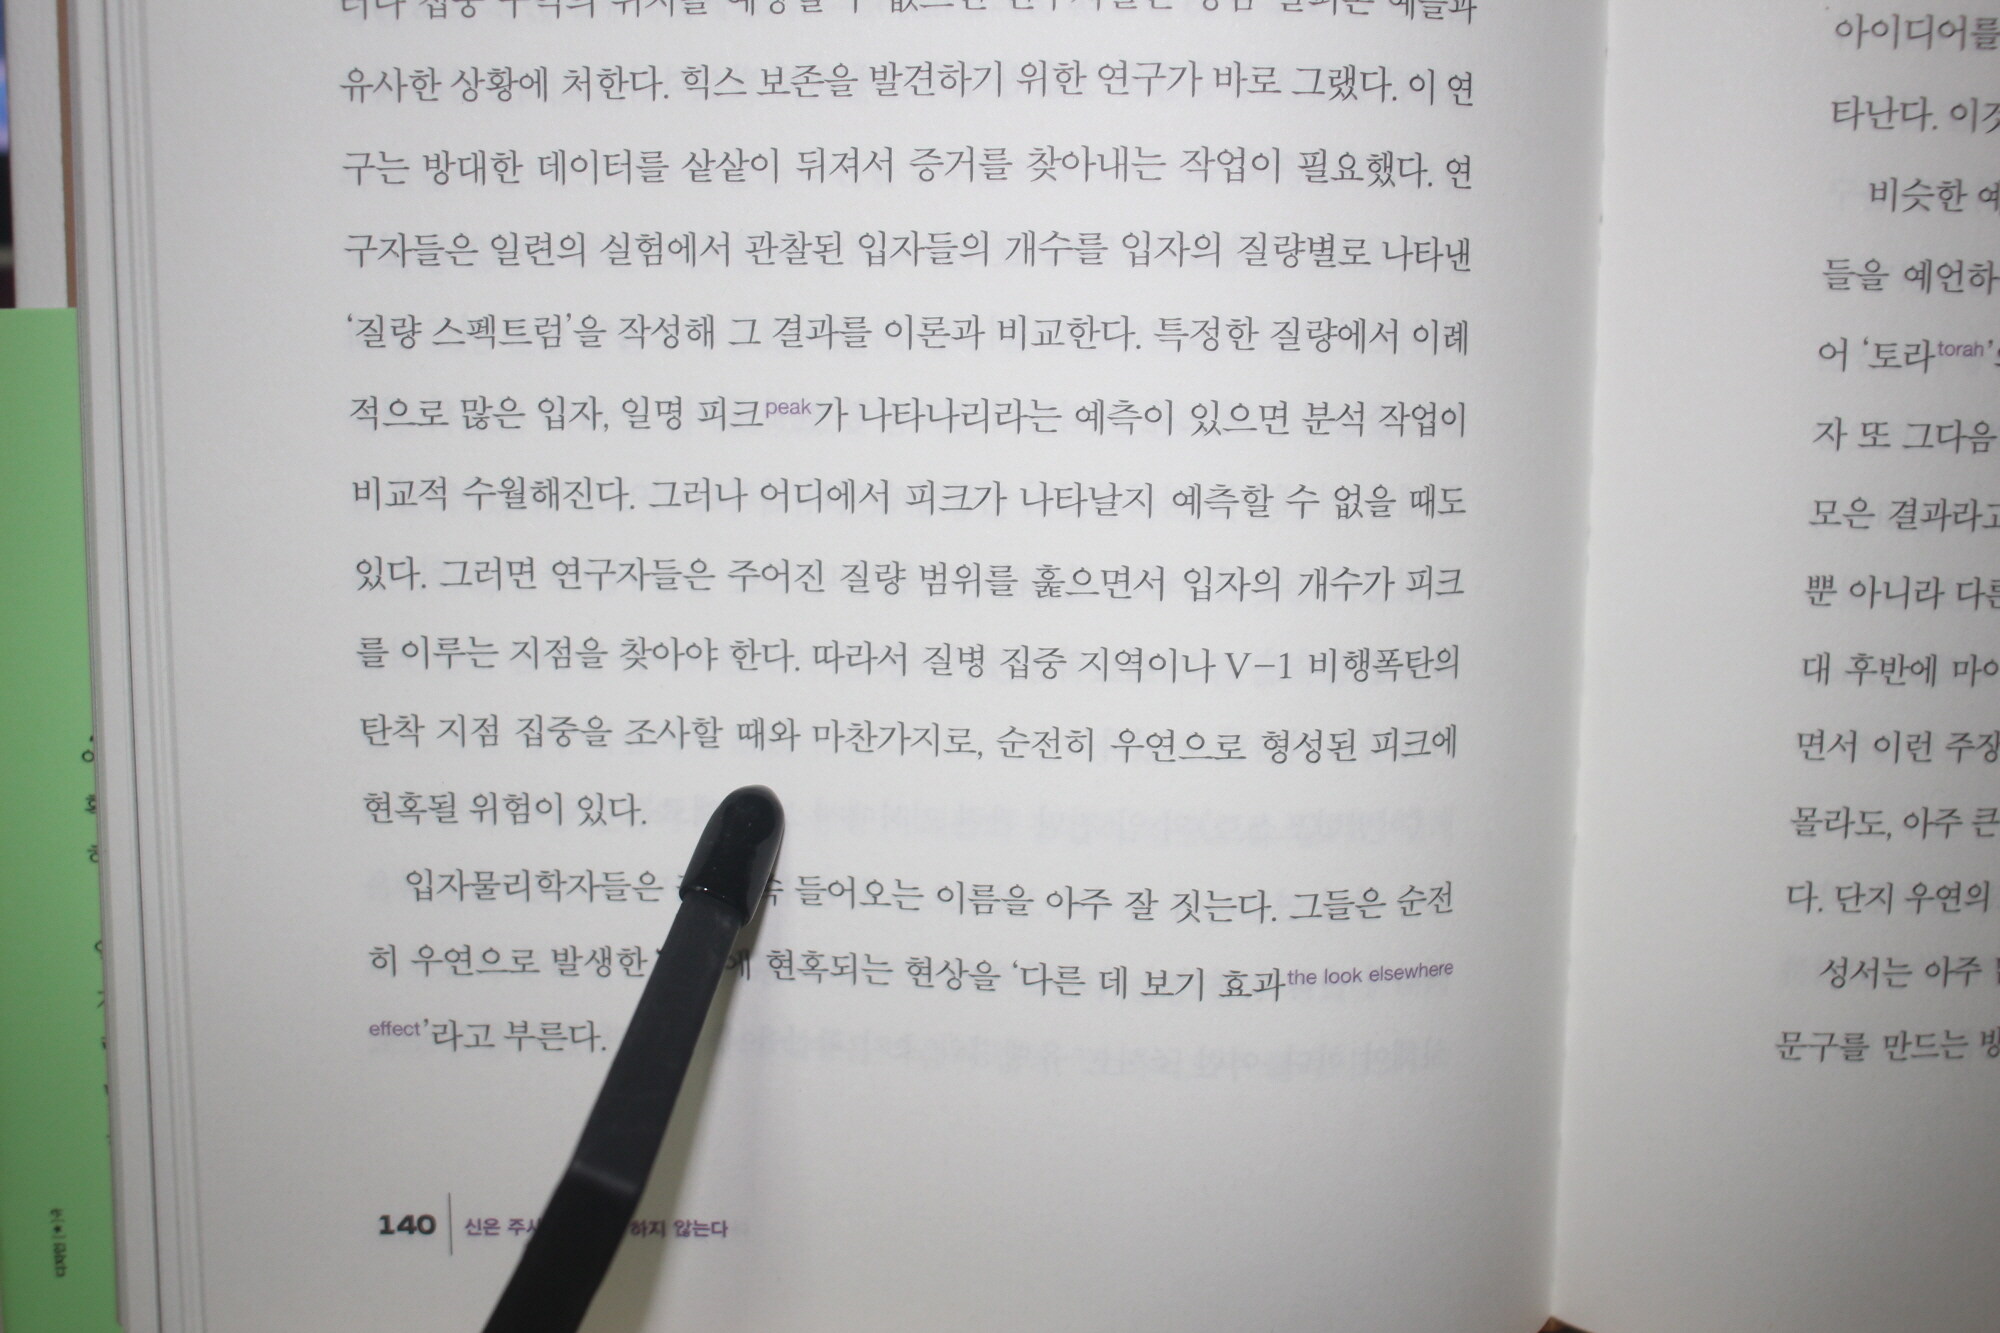 유사한 상황에 처한다. 힉스 보존을 발견하기 위한 연구가 바로 그랬다. 이 연
구는 방대한 데이터를 샅샅이 뒤져서 증거를 찾아내는 작업이 필요했다. 연
구자들은 일련의 실험에서 관찰된 입자들의 개수를 입자의 질량별로 나타낸
‘질량 스펙트럼’을 작성해 그 결과를 이론과 비교한다. 특정한 질량에서 이례
적으로 많은 입자, 일명 피크peak가 나타나리라는 예측이 있으면 분석 작업이
비교적 수월해진다. 그러나 어디에서 피크가 나타날지 예측할 수 없을 때도
있다. 그러면 연구자들은 주어진 질량 범위를 훑으면서 입자의 개수가 피크
를 이루는 지점을 찾아야 한다. 따라서 질병 집중 지역이나 V-1 비행폭탄의
탄착 지점 집중을 조사할 때와 마찬가지로, 순전히 우연으로 형성된 피크에
현혹될 위험이 있다.
입자물리학자들은 들어오는 이름을 아주 잘 짓는다. 그들은 순전
히 우연으로 발생한 현혹되는 현상을 ‘다른 데 보기 효과the look elsewhere
effect’라고 부른다.
140
신은 하지 않는다
아이디어를
타난다.
비슷한
들을
어 ‘토라torah’
자 또 그다음
모은
뿐 아니라
대 후반에
면서 이런
몰라도, 아주 큰
다. 단지 우연의
성서는 아주
문구를 만드는